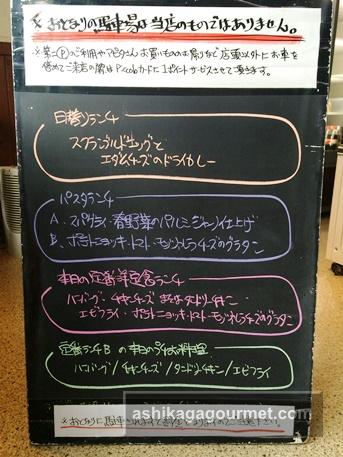 ※おとなりの駐車場は当店のものではありません。
※第二Ⓟのご利用やアピタさんお買いものお帰りなど店東以外にお車を
停めてご来店の際はPicobカードに1ポイントサービスさせて頂きます。
日替りランチ
スクランブルドエッグと
エダとチーズのドライカレー
パスタランチ
A. スパゲティ・春野菜のパルミジャーノ仕上げ
B. ポテトニョッキ・トマト・モッツァレラチーズのグラタン
本日の定番洋定食ランチ
ハンバーグ・チキンチーズ またはタンドリーチキン
エビフライ・ポテトニョッキ・トマト・モッツァレラチーズのグラタン
定番ランチBの本日の料理
ハンバーグ/チキンチーズ/タンドリーチキン/エビフライ
※おとなりに駐車されますと
ashikagagourmet.com